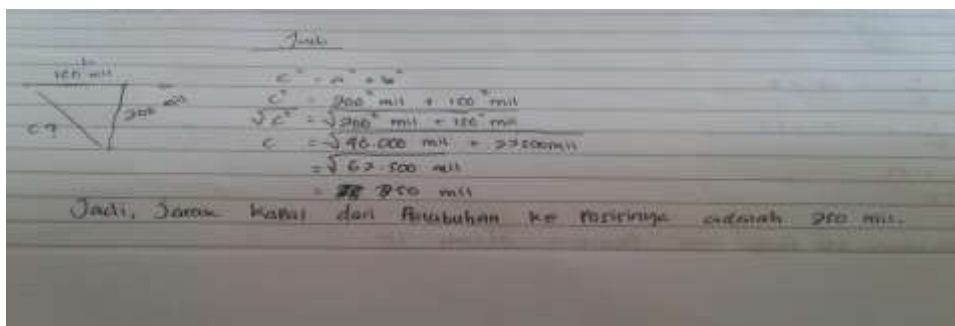 Jawab
b
150 mil
200 mil
c ?
c² = a² + b²
c² = 200² mil + 150² mil
√c² = √200² mil + 150² mil
c = √40.000 mil + 22500 mil
= √62.500 mil
= 250 mil
Jadi, Jarak kapal dari Pelabuhan ke Posisinya adalah 250 mil.